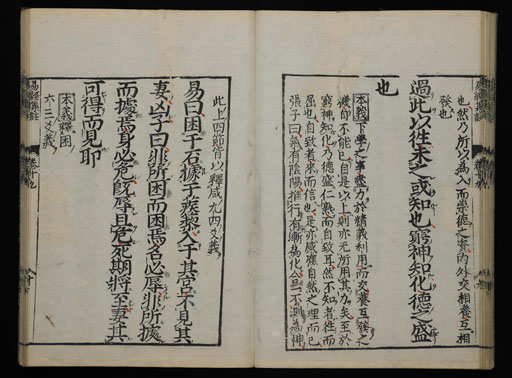 也然乃所以為入而崇德之資內外交相養互相
發也
過此以往未之或知也窮神知化德之盛
也
本義下學之事盡力於精義利用而交養互發之
機自不能已自是以上則亦无所用其力矣至於
窮神知化乃德盛仁熟而自致耳然不知者往而
屈也自致者來而信也是亦感應自然之理而已
張子曰氣有陰陽推行有漸為化合一不測為神
此上四節皆以釋咸九四爻義
易曰困于石據于蒺藜入于其宮不見其
妻凶子曰非所困而困焉名必辱非所據
而據焉身必危既辱且危死期將至妻其
可得而見耶
本義釋困
六三爻義